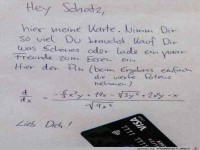 Hey Schatz,
hier meine Karte. Nimm Dir
so viel Du brauchst. Kauf Dir
was Schönes oder lade ein paar
Freunde zum Essen ein.
Hier der Pin (beim Ergebnis einfach
die vierte Potenz
nehmen)
d
dx
Lieb Dich!
VISA